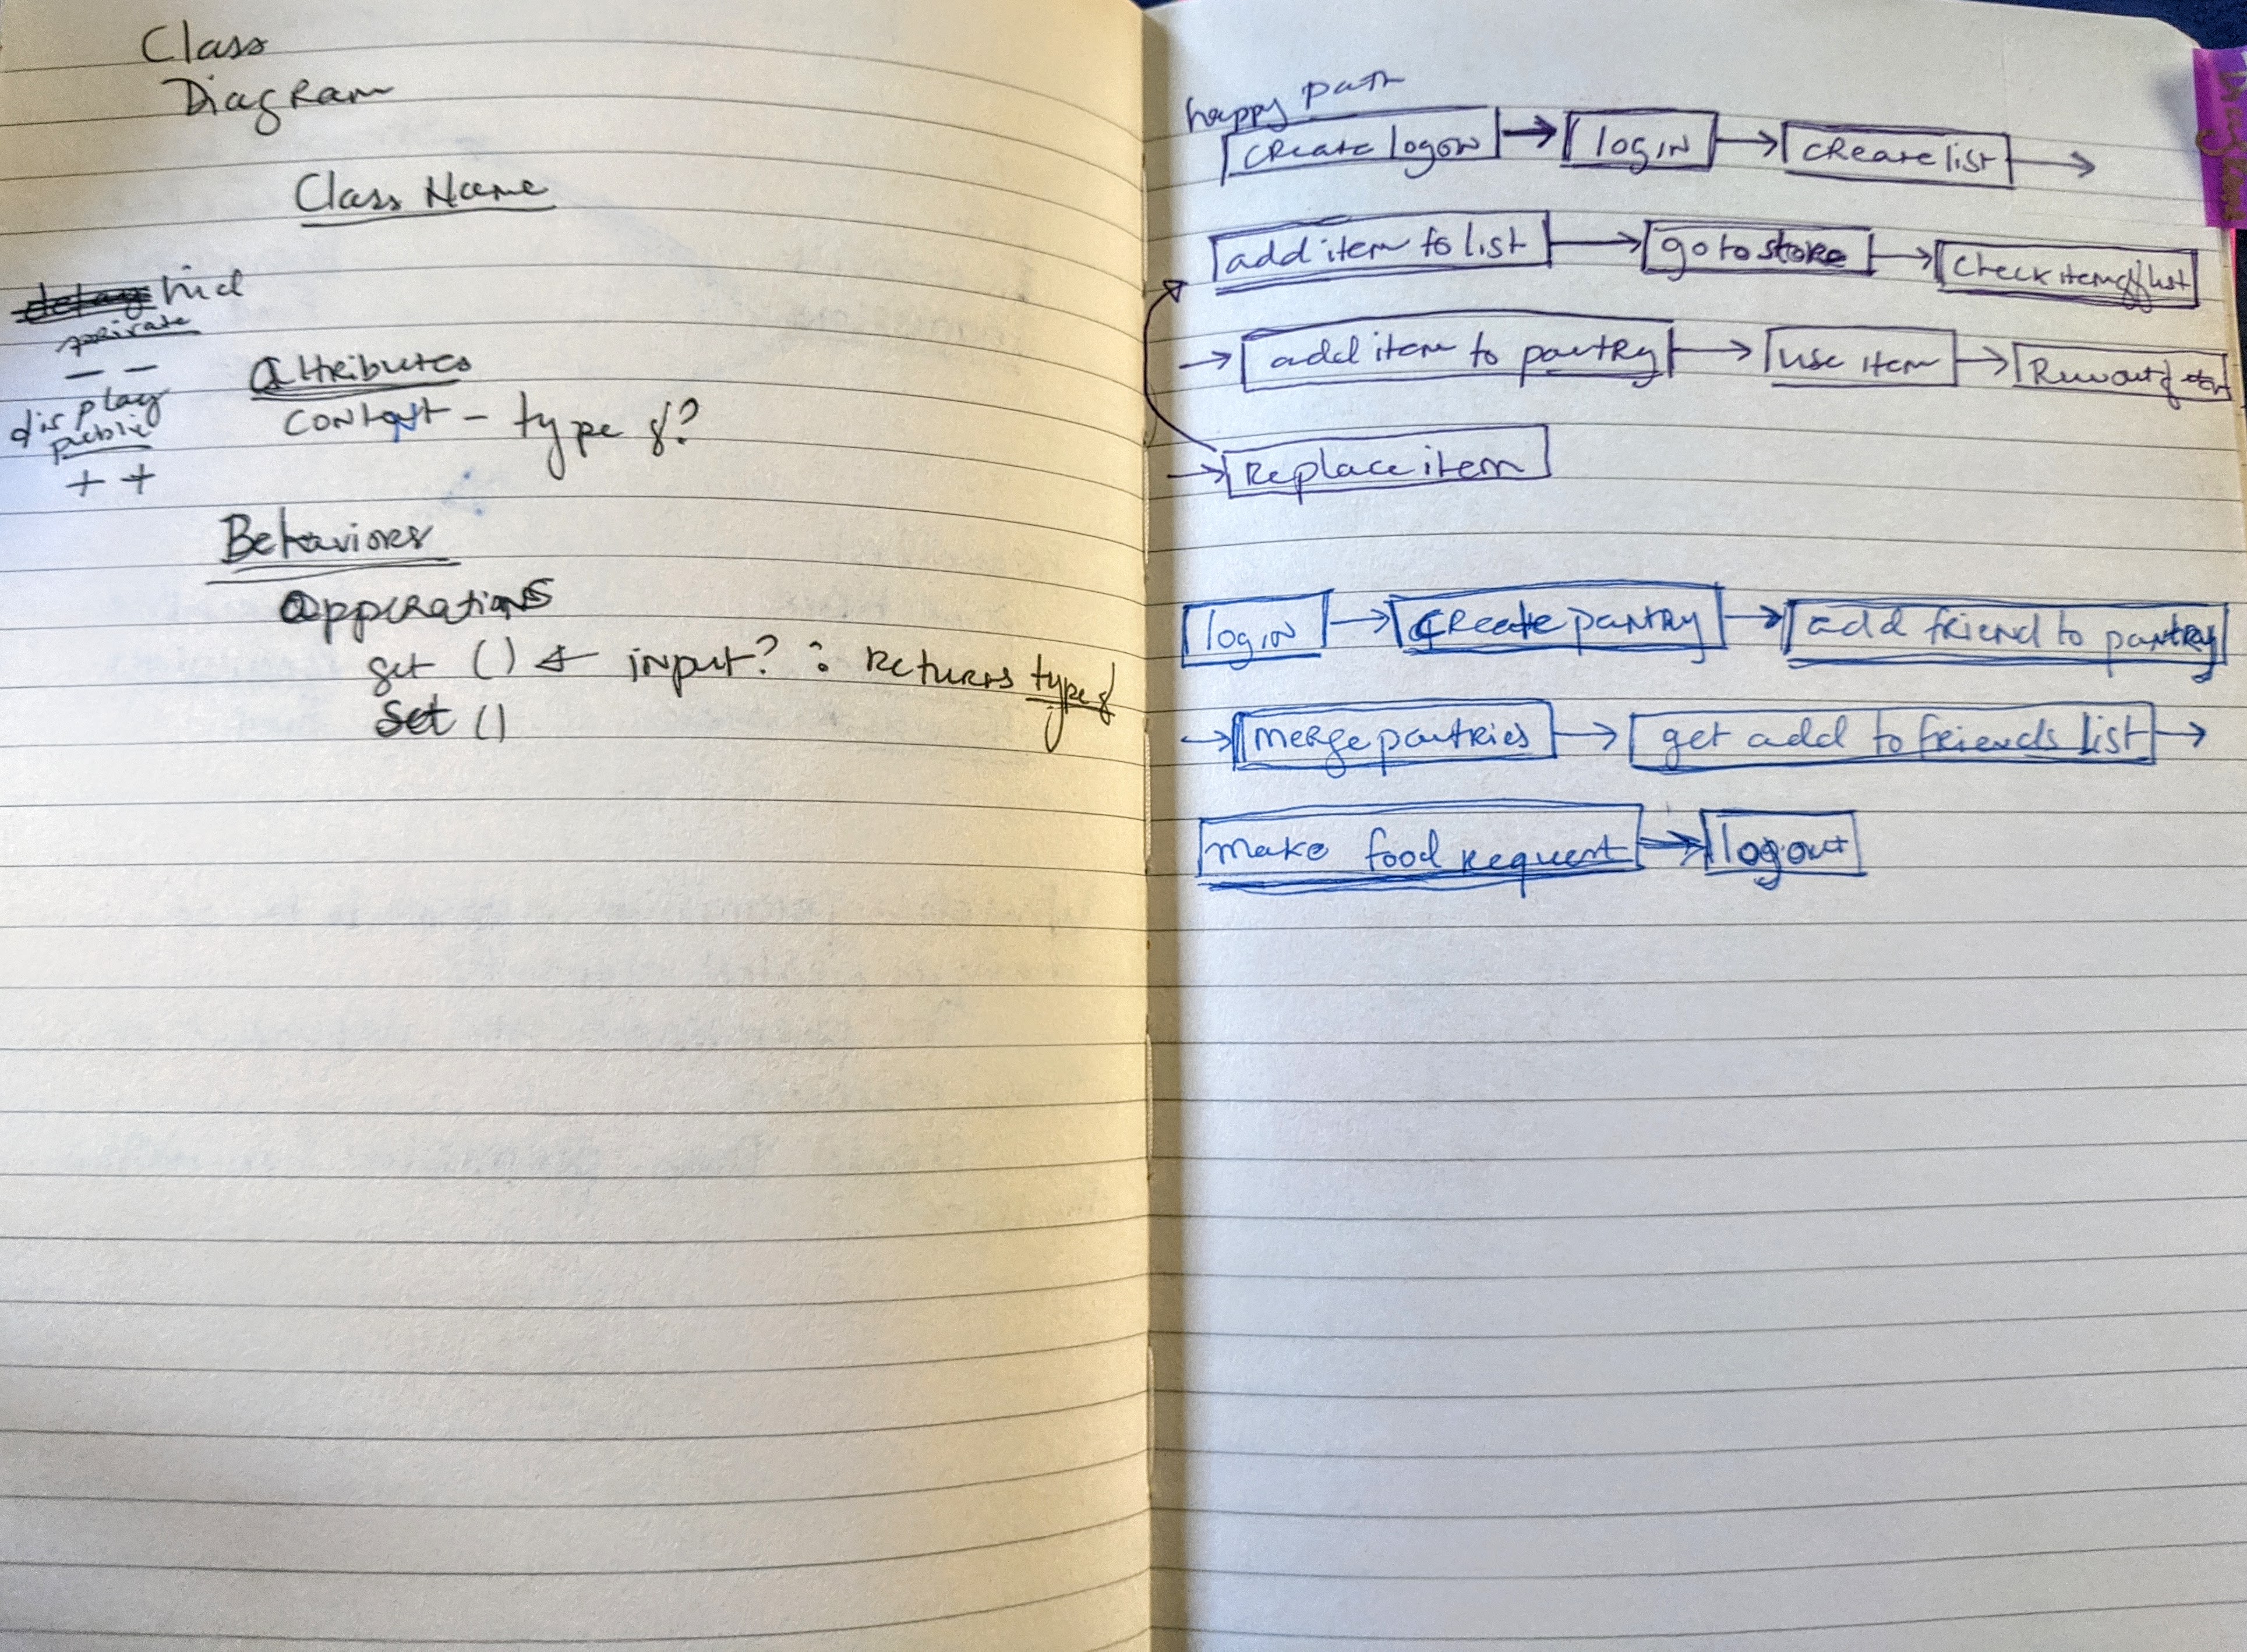 Class
Diagram
Class Name
hid
private
— —
display
public
+ +
Attributes
content – type of?
Behaviors
Opperations
get () ← input? : Returns type of
Set ()
happy path
Create logon → login → Create list →
add item to list → go to store → Check item off list
→ add item to pantry → use item → Run out of
→ Replace item
login → Create pantry → add friend to pantry
→ merge pantries → get add to friends list →
make food request → logout